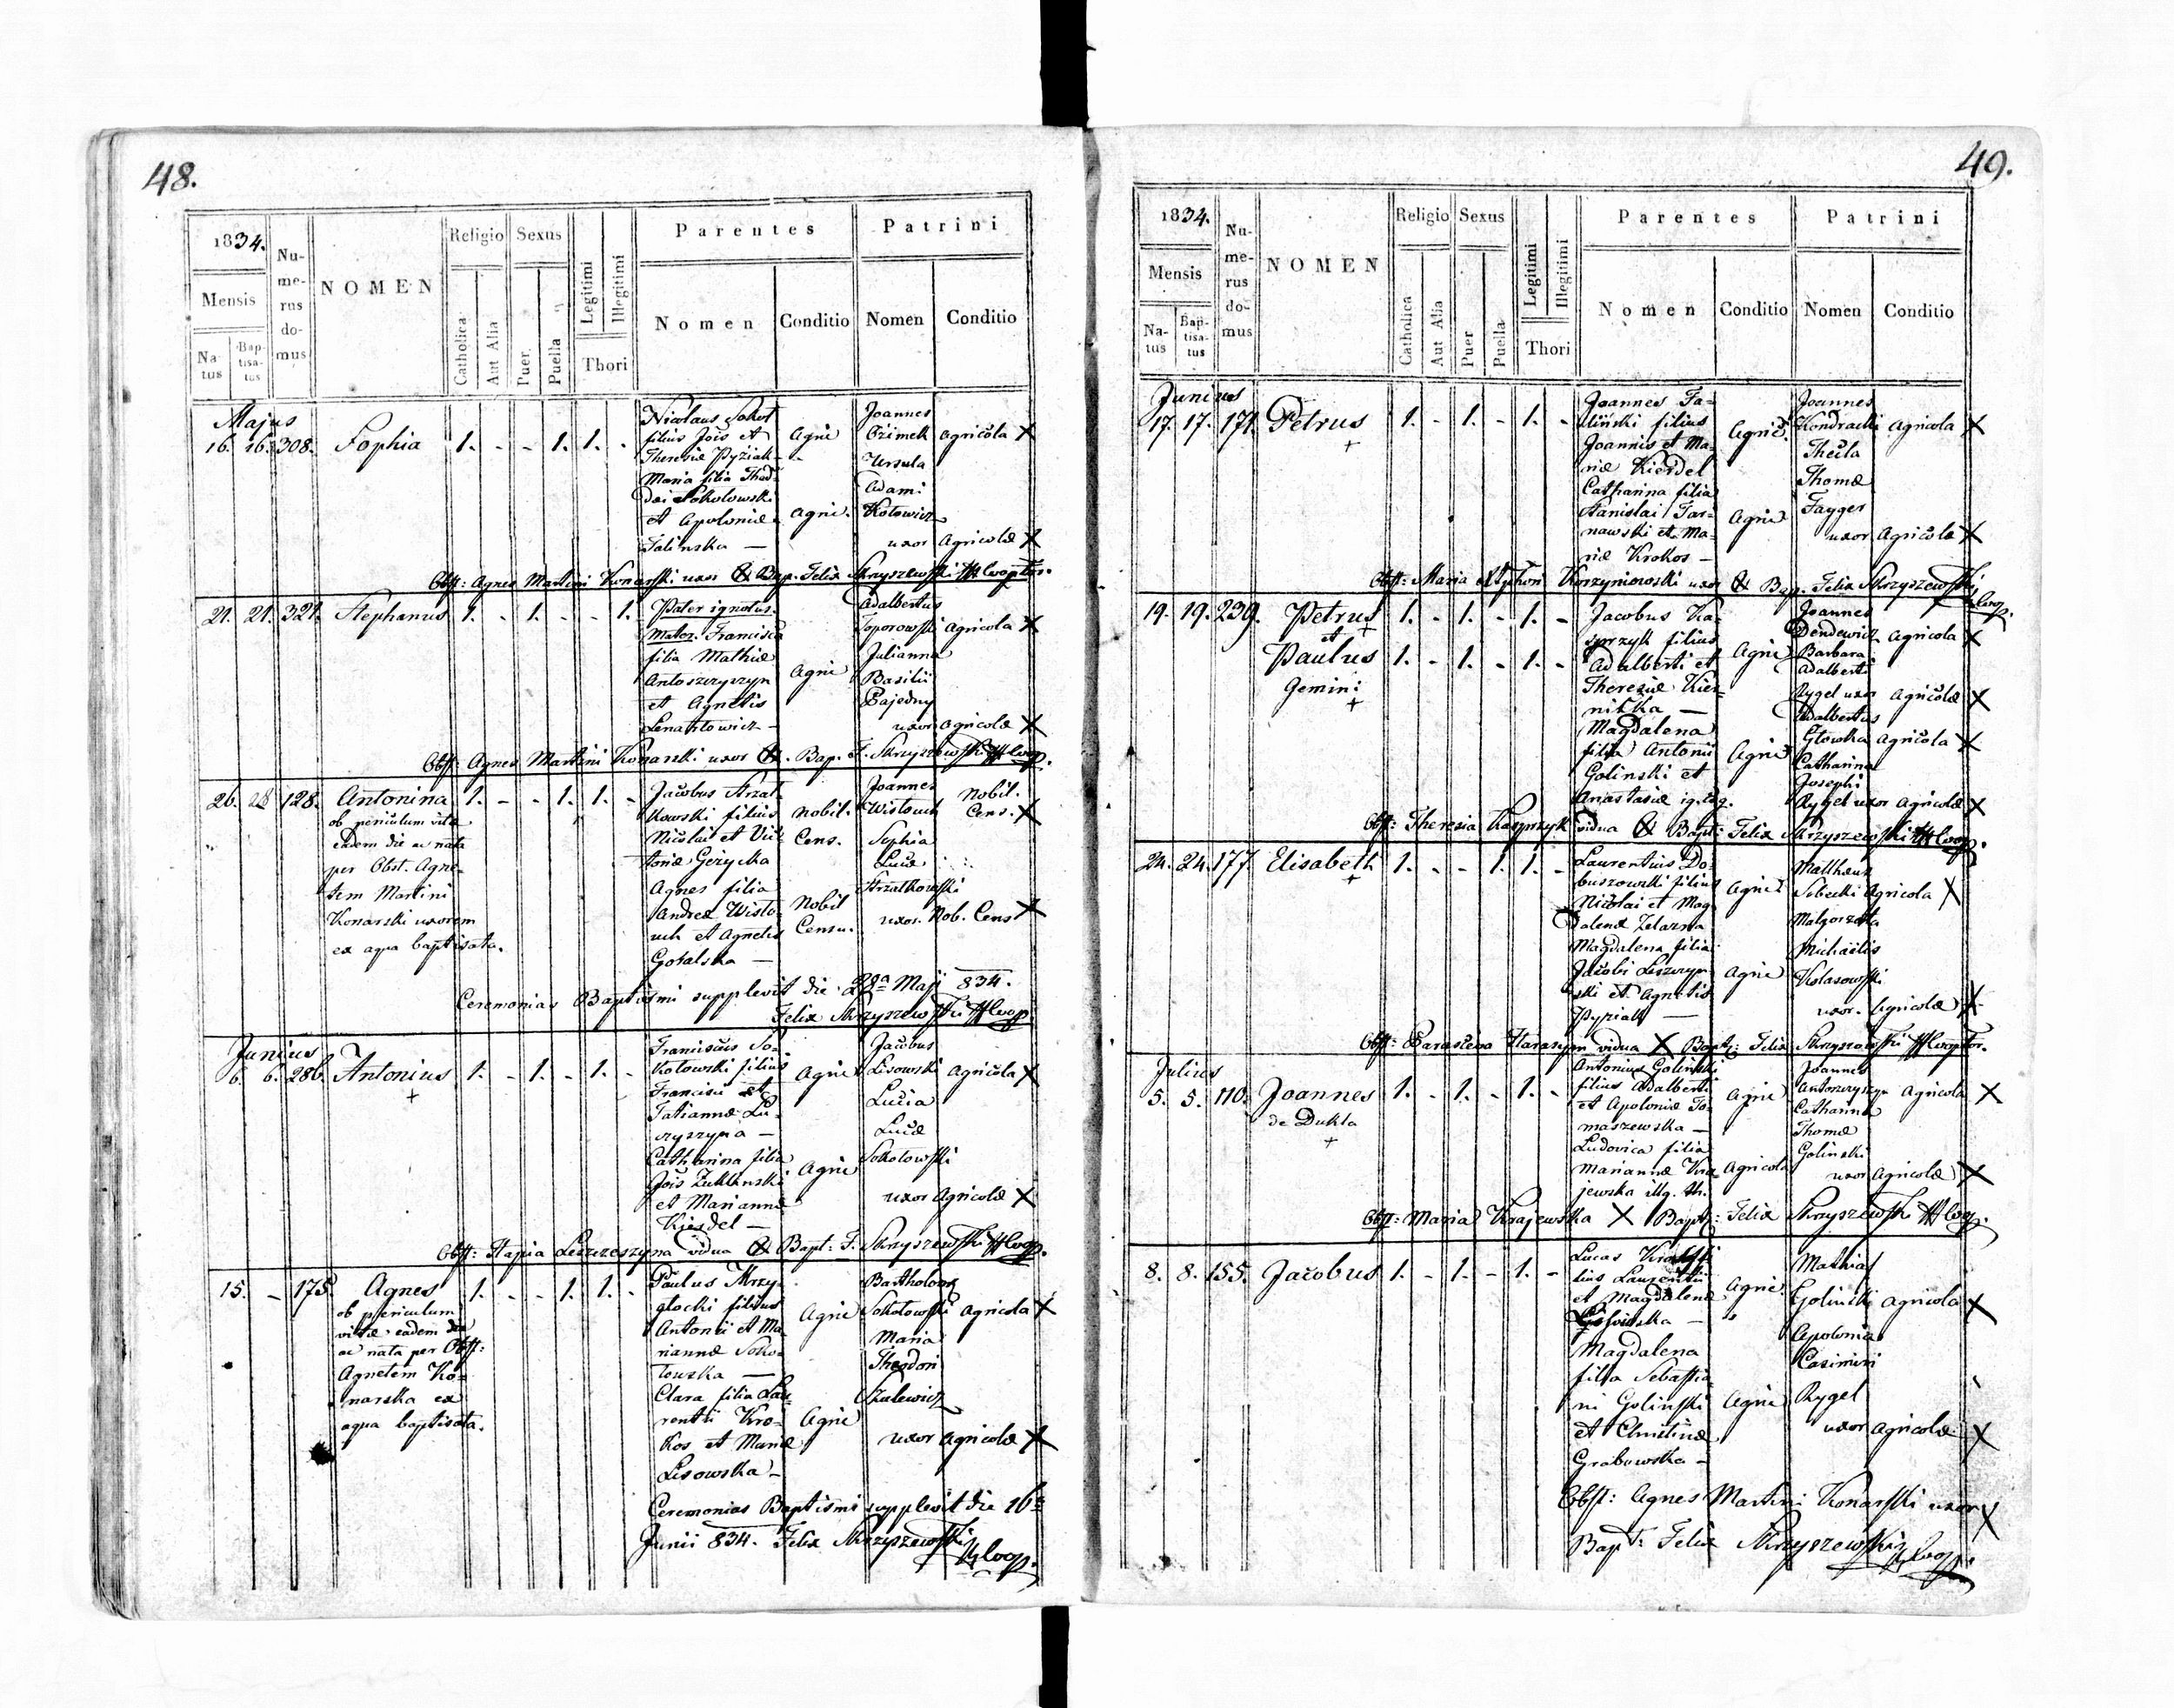 48.
1834.
Mensis
Na-
tus
Bap-
tisa-
tus
Nu-
me-
rus
do-
mus
NOMEN
Religio
Catholica
Aut Alia
Sexus
Puer
Puella
Legitimi
Illegitimi
Thori
Parentes
Nomen
Conditio
Patrini
Nomen
Conditio
Majus
16. 16. 308. Sophia 1. - - 1. 1. -
Nicolaus Sokoł
filius Jois et
Theresiæ Pyziak
Maria filia Thad-
dæi Sokołowski
et Apoloniæ
Talinska —
Agric
Agric.
Joannes
Ozimek Agricola X
Ursula
Adami
Kotowicz
uxor Agricolæ X
Obst: Agnes Martini Konarski uxor X Bap. Felix Skrzyszewski Cooptor.
21. 21. 321. Stephanus 1. - 1. - - 1.
Pater ignotus.
Mater Francisca
filia Mathiæ
Antoszczyszyn
et Agnetis
Lenartowicz —
Agric
Adalbertus
Toporowski Agricola X
Julianna
Basilii
Pajedny
uxor Agricolæ X
Obst: Agnes Martini Konarski uxor X. Bap. F. Skrzyszewski Coop.
26. 28 128. Antonina 1. - - 1. 1. -
ob periculum vitæ
eadem die ac nata
per Obst. Agne-
tem Martini
Konarski uxorem
ex aqua baptisata.
Jacobus Strzał-
kowski filius
Nicolai et Vic-
toriæ Gerycka
Agnes filia
Andreæ Wisło-
uch et Agnetis
Goralska —
Nobil.
Cens.
Nobil
Censu.
Joannes
Wisłouch
Nobil.
Cens. X
Sophia
Lucæ
Strzałkowski
uxor. Nob. Cens X
Ceremonias Baptismi supplevit die 28ª Maji 834.
Felix Skrzyszewski Coop.
Junius
6. 6. 286. Antonius 1. - 1. - 1. -
+
Franciscus So-
kołowski filius
Francisci et
Tatiannæ Lu-
czyszyna —
Catharina filia
Jois Zuklinski
et Mariannæ
Kiesdel —
Agric
Agric
Jacobus
Lisowski Agricola X
Lucia
Lucæ
Sokołowski
uxor Agricolæ X
Obst: Hapia Leszczeszyna vidua X Bapt: F. Skrzyszewski Coop.
15. - 175. Agnes 1. - - 1. 1. -
ob periculum
vitæ eadem die
ac nata per Obst:
Agnetem Ko-
narska ex
aqua baptisata.
Paulus Przy-
głocki filius
Antonii et Ma-
riannæ Soko-
łowska —
Clara filia Lau-
rentii Kro-
kos et Mariæ
Lisowska —
Agric
Agric
Bartholomæ
Sokołowski Agricola X
Maria
Theodori
Szulewicz
uxor Agricolæ X
Ceremonias Baptismi supplevit die 16ª
Junii 834. Felix Skrzyszewski
Coop.
49.
1834.
Mensis
Na-
tus
Bap-
tisa-
tus
Nu-
me-
rus
do-
mus
NOMEN
Religio
Catholica
Aut Alia
Sexus
Puer
Puella
Legitimi
Illegitimi
Thori
Parentes
Nomen
Conditio
Patrini
Nomen
Conditio
Junius
17. 17. 171. Petrus 1. - 1. - 1. -
+
Joannes Ta-
liński filius
Joannis et Ma-
riæ Kiesdel
Catharina filia
Stanislai Tar-
nawski et Ma-
riæ Krokos —
Agric.
Agric
Joannes
Kondracki Agricola X
Thecla
Thomæ
Fayger
uxor Agricolæ X
Obst: Maria Korzyniowski uxor X Bap. Felix Skrzyszewski
Coop.
19. 19. 239. Petrus 1. - 1. - 1. -
et
Paulus 1. - 1. - 1. -
Gemini
+
Jacobus Ka-
sprzyk filius
Adalberti et
Theresiæ Kier-
nitka —
Magdalena
filia Antonii
Golinski et
Anastasiæ
Agric
Agric
Joannes
Dendewicz Agricola X
Barbara
Adalberti
Rygel uxor Agricolæ X
Adalbertus
Głowka Agricola X
Catharina
Josephi
Rygel uxor Agricolæ X
Obst: Theresia Kasprzyk vidua X Bapt: Felix Skrzyszewski Coop.
24. 24. 177. Elisabeth 1. - - 1. 1. -
+
Laurentius Do-
buszowski filius
Nicolai et Mag-
dalenæ Zelazna
Magdalena filia
Jacobi Leszczyn-
ski et Agnetis
Pyziak —
Agric
Agric
Matthæus
Sobecki Agricola X
Małgorzata
Michaelis
Kołasowski
uxor. Agricolæ X
Obst: Parasceva Haranym vidua X Bapt: Felix Skrzyszewski Cooptor.
Julius
5. 5. 110. Joannes 1. - 1. - 1. -
de Dukla
+
Antonius Golinski
filius Adalberti
et Apoloniæ To-
maszewska —
Ludovica filia
Mariannæ Kra-
jewska illg. th.
Agric
Agricola
Joannes
Antoszczyszyn Agricola X
Catharina
Thomæ
Golinski
uxor Agricolæ X
Obst: Maria Krajewska X Bapt: Felix Skrzyszewski Coop.
8. 8. 155. Jacobus 1. - 1. - 1. -
Lucas
lius Laurentii
et Magdalenæ
Lisowska —
Magdalena
filia Sebastia-
ni Golinski
et Christinæ
Grabowska —
Agric.
Agric
Mathias
Golinski Agricola X
Apolonia
Casimiri
Rygel
uxor Agricolæ X
Obst: Agnes Martini Konarski uxor X
Bapt: Felix Skrzyszewski Coop.